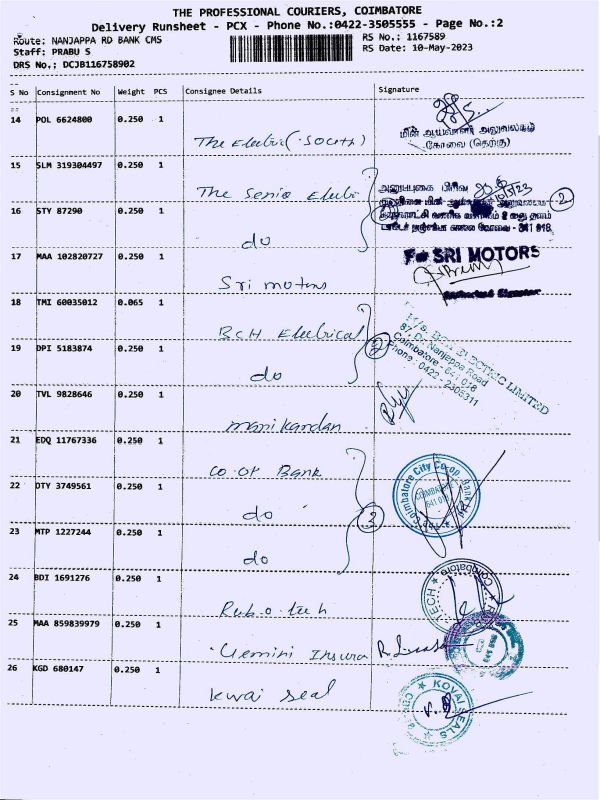 THE PROFESSIONAL COURIERS, COIMBATORE
Delivery Runsheet - PCX - Phone No.:0422-3505555 - Page No.:2
Route: NANJAPPA RD BANK CMS
RS No.: 1167589
Staff: PRABU S
RS Date: 10-May-2023
DRS No.: DCJB116758902
S No Consignment No Weight PCS Consignee Details Signature
14 POL 6624800 0.250 1
மின் ஆய்வாளர் அலுவலகம்
The Electric (South) கோவை (தெற்கு)
15 SLM 319304497 0.250 1
The Senio Electri
அனுப்புகை பிரிவு 10/5/23
2
16 STY 87290 0.250 1
641 018
do
17 MAA 102820727 0.250 1
For SRI MOTORS
Sri motors
18 TMI 60035012 0.065 1
BCH Electrical
M/s. BCH ELECTRIC LIMITED
87, Dr. Nanjappa Road
Coimbatore - 641 018
Phone : 0422 - 2305311
19 DPI 5183874 0.250 1
2
do
20 TVL 9828646 0.250 1
manikandan
21 EDQ 11767336 0.250 1
Co-op Bank
The Coimbatore City Co-op. Bank
COIMBATORE
22 DTY 3749561 0.250 1
do
3
23 MTP 1227244 0.250 1
do
24 BDI 1691276 0.250 1
Coimbatore
TECH
25 MAA 859839979 0.250 1
Gemini Insura
26 KGD 680147 0.250 1
kwai seal
KOVAI SEALS